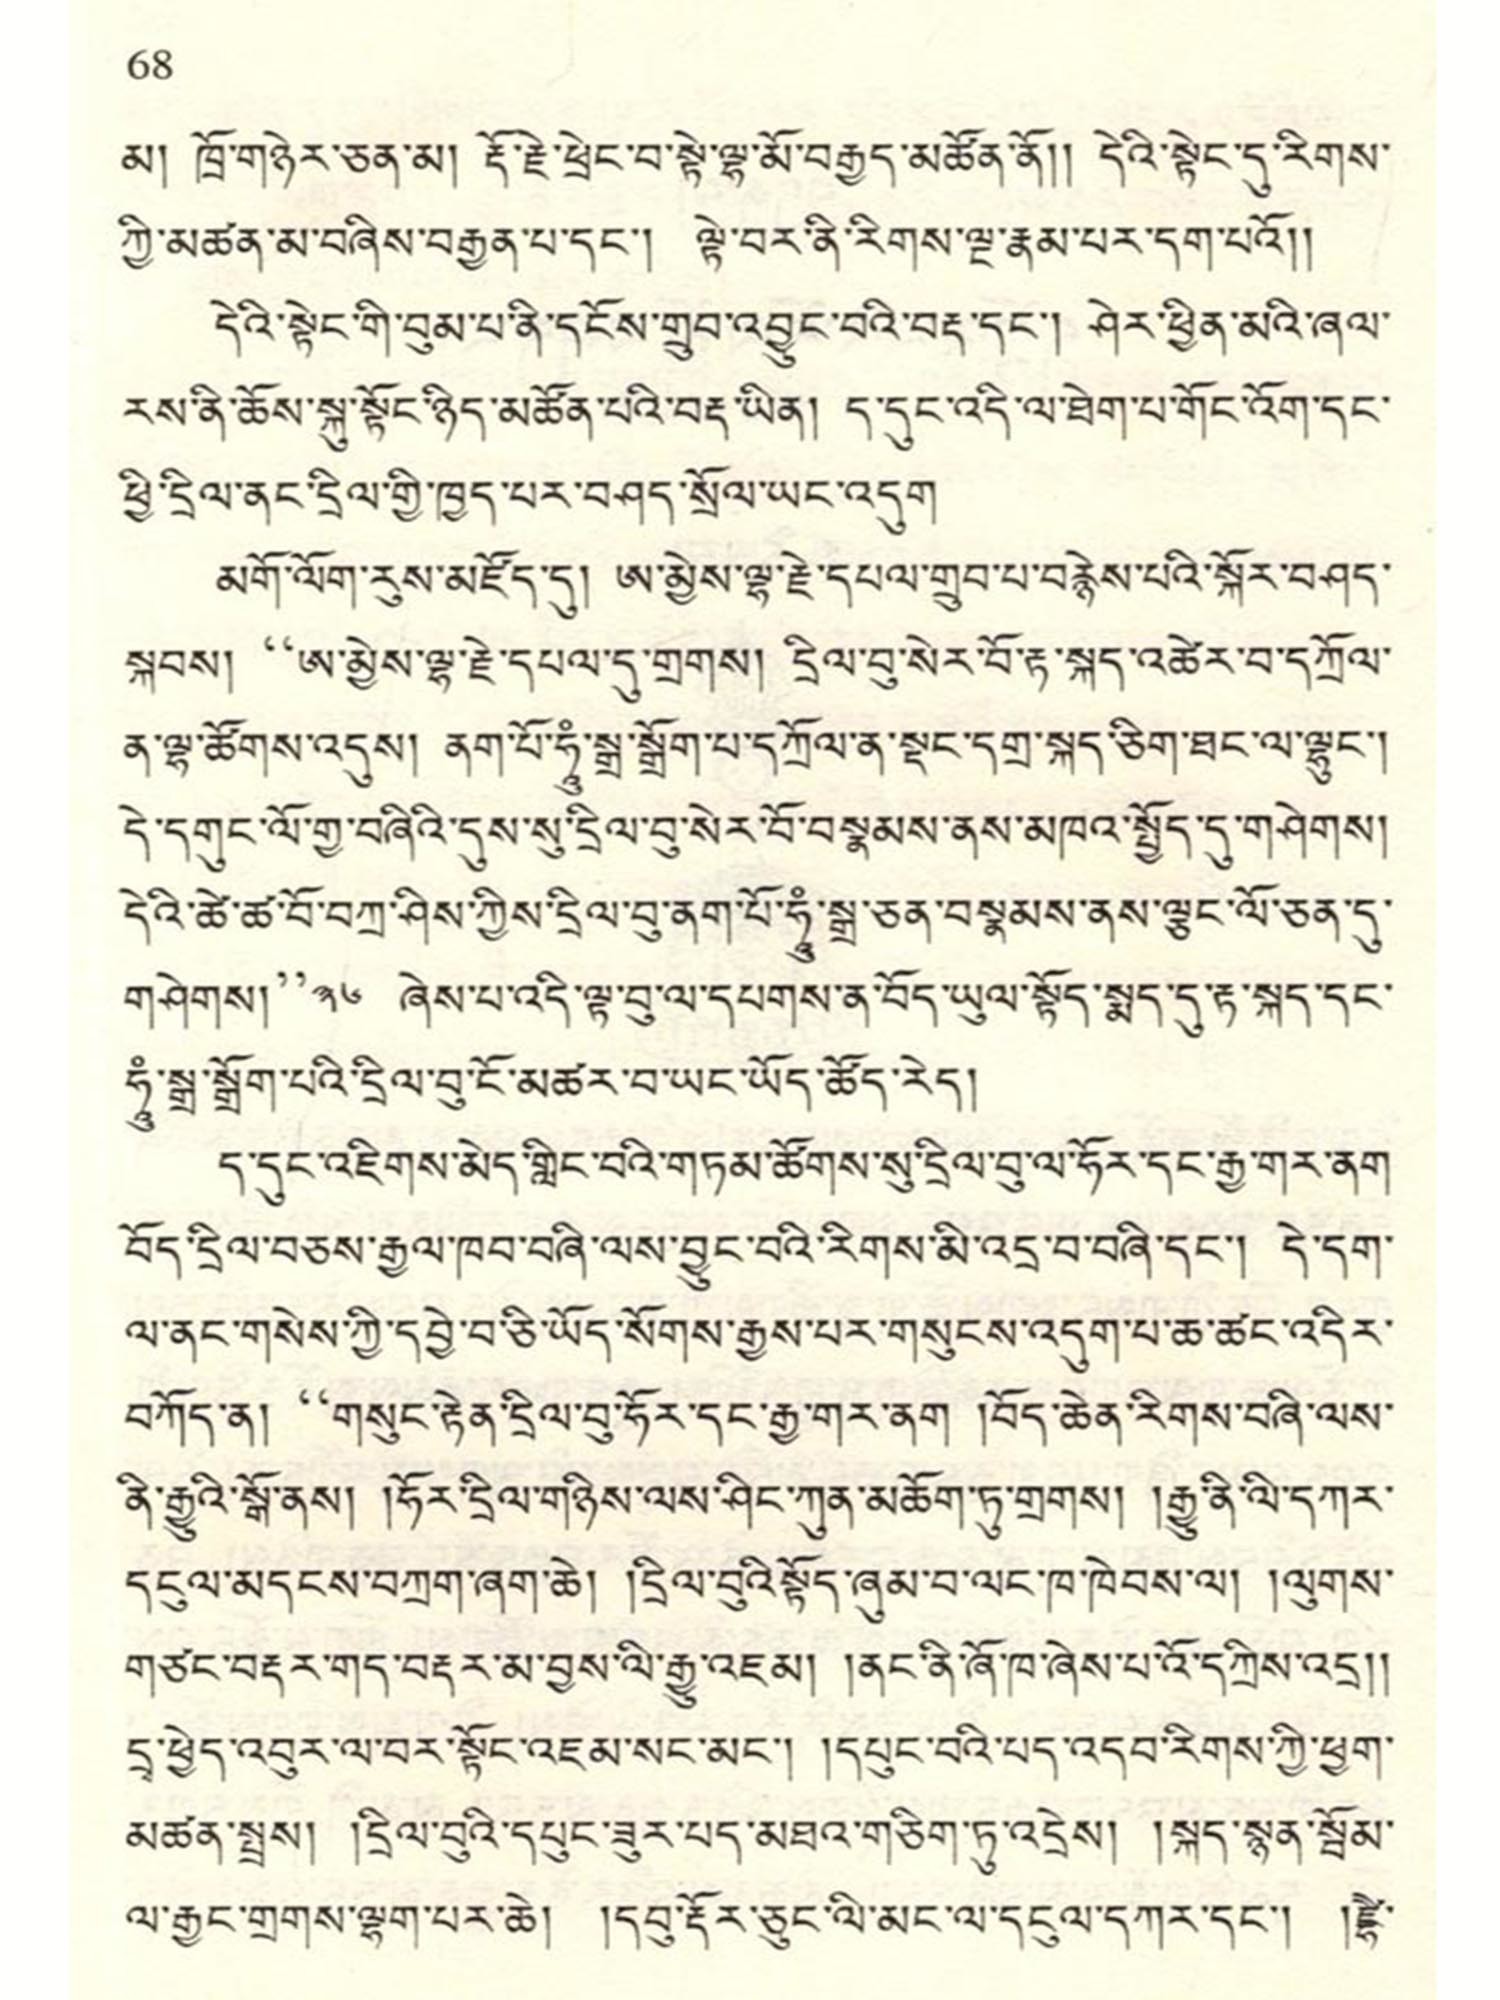 68
མ། ཁྲོ་གཉེར་ཅན་མ། རྡོ་རྗེ་ཕྲེང་བ་སྟེ་ལྷ་མོ་བརྒྱད་མཚོན་ནོ།། དེའི་སྟེང་དུ་རིགས་
ཀྱི་མཚན་མ་བཞིས་བརྒྱན་པ་དང་། ལྟེ་བར་ནི་རིགས་ལྔ་རྣམ་པར་དག་པའོ།།
དེའི་སྟེང་གི་བུམ་པ་ནི་དངོས་གྲུབ་འབྱུང་བའི་བརྡ་དང་། ཤེར་ཕྱིན་མའི་ཞལ་
རས་ནི་ཆོས་སྐུ་སྟོང་ཉིད་མཚོན་པའི་བརྡ་ཡིན། ད་དུང་འདི་ལ་ཐེག་པ་གོང་འོག་དང་
ཕྱི་དྲིལ་ནང་དྲིལ་གྱི་ཁྱད་པར་བཤད་སྲོལ་ཡང་འདུག
མགོ་ལོག་རུས་མཛོད་དུ། ཨ་མྱེས་ལྷ་རྗེ་དཔལ་གྲུབ་པ་བརྙེས་པའི་སྐོར་བཤད་
སྐབས། “ཨ་མྱེས་ལྷ་རྗེ་དཔལ་དུ་གྲགས། དྲིལ་བུ་སེར་བོ་རྟ་སྐད་འཚེར་བ་དཀྲོལ་
ན་ལྷ་ཚོགས་འདུས། ནག་པོ་ཧཱུྃ་སྒྲ་སྒྲོག་པ་དཀྲོལ་ན་སྡང་དགྲ་སྐད་ཅིག་ཐང་ལ་ལྷུང་།
དེ་དགུང་ལོ་གྱ་བཞིའི་དུས་སུ་དྲིལ་བུ་སེར་བོ་བསྣམས་ནས་མཁའ་སྤྱོད་དུ་གཤེགས།
དེའི་ཚེ་ཚ་བོ་བཀྲ་ཤིས་ཀྱིས་དྲིལ་བུ་ནག་པོ་ཧཱུྃ་སྒྲ་ཅན་བསྣམས་ནས་ལྕང་ལོ་ཅན་དུ་
གཤེགས།”༣༦ ཞེས་པ་འདི་ལྟ་བུ་ལ་དཔགས་ན་བོད་ཡུལ་སྟོད་སྨད་དུ་རྟ་སྐད་དང་
ཧཱུྃ་སྒྲ་སྒྲོག་པའི་དྲིལ་བུ་ངོ་མཚར་བ་ཡང་ཡོད་ཚོད་རེད།
ད་དུང་འཇིགས་མེད་གླིང་བའི་གཏམ་ཚོགས་སུ་དྲིལ་བུ་ལ་ཧོར་དང་རྒྱ་གར་ནག
བོད་དྲིལ་བཅས་རྒྱལ་ཁབ་བཞི་ལས་བྱུང་བའི་རིགས་མི་འདྲ་བ་བཞི་དང་། དེ་དག་
ལ་ནང་གསེས་ཀྱི་དབྱེ་བ་ཅི་ཡོད་སོགས་རྒྱས་པར་གསུངས་འདུག་པ་ཆ་ཚང་འདིར་
བཀོད་ན། “གསུང་རྟེན་དྲིལ་བུ་ཧོར་དང་རྒྱ་གར་ནག །བོད་ཆེན་རིགས་བཞི་ལས་
ནི་རྒྱུའི་སྒོ་ནས། །ཧོར་དྲིལ་གཉིས་ལས་ཤིང་ཀུན་མཆོག་ཏུ་གྲགས། །རྒྱུ་ནི་ལི་དཀར་
དངུལ་མདངས་བཀྲག་ཞག་ཆེ། །དྲིལ་བུའི་སྟོད་ཞུམ་བ་ལང་ཁ་ཁེབས་ལ། །ལུགས་
གཙང་བརྡར་གད་བརྡར་མ་བྱས་ལི་རྒྱུ་འཇམ། །ནང་ནི་ཞོ་ཁ་ཞེས་པ་འོ་དཀྲིས་འདྲ།།
དྲྭ་ཕྱེད་འབུར་ལ་བར་སྟོང་འཇམ་སང་མང་། །དཔུང་བའི་པད་འདབ་རིགས་ཀྱི་ཕྱག་
མཚན་སྤྲས། །དྲིལ་བུའི་དཔུང་ཟུར་པད་མཐའ་གཅིག་ཏུ་འདྲེས། །སྐད་སྙན་སྦོམ་
ལ་རྒྱང་གྲགས་ལྷག་པར་ཆེ། །དབུ་རྡོར་ཅུང་ལི་མང་ལ་དངུལ་དཀར་དང་།